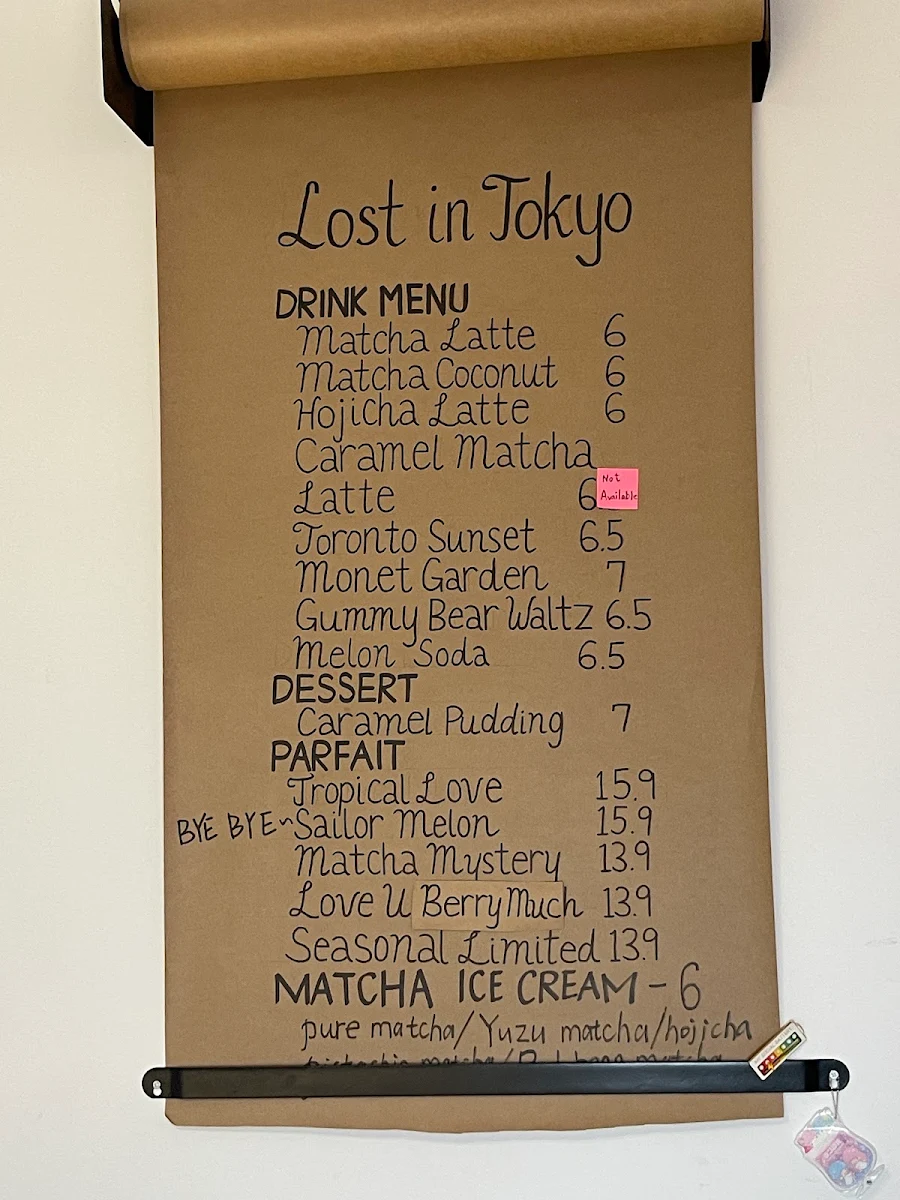 Lost in Tokyo
DRINK MENU
Matcha Latte 6
Matcha Coconut 6
Hojicha Latte 6
Caramel Matcha
Latte 6
Not
Available
Toronto Sunset 6.5
Monet Garden 7
Gummy Bear Waltz 6.5
Melon Soda 6.5
DESSERT
Caramel Pudding 7
PARFAIT
Tropical Love 15.9
BYE BYE~Sailor Melon 15.9
Matcha Mystery 13.9
Love U Berry Much 13.9
Seasonal Limited 13.9
MATCHA ICE CREAM - 6
pure matcha/Yuzu matcha/hojicha
pistachio matcha/